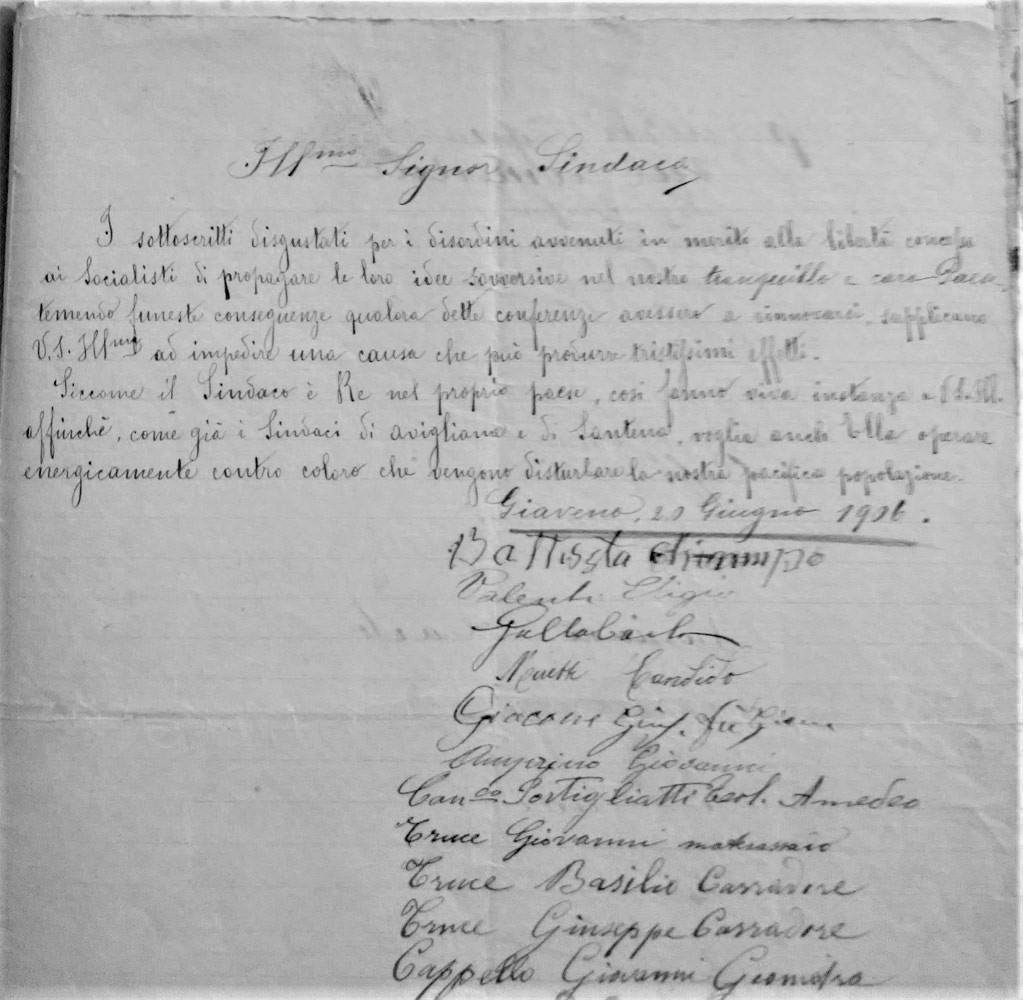 Ill.mo Signor Sindaco
I sottoscritti disgustati per i disordini avvenuti in merito alla libertà concessa
ai Socialisti di propagare le loro idee sovversive nel nostro tranquillo e caro Paese,
temendo funeste conseguenze qualora dette conferenze avessero a rinnovarsi, supplicano
V.S. Ill.ma ad impedire una causa che può produrre tristissimi effetti.
Siccome il Sindaco è Re nel proprio paese, così fanno viva instanza a V.S. Ill.
affinchè, come già i Sindaci di Avigliana e di Santena, voglia anche Ella operare
energicamente contro coloro che vengono disturbare la nostra pacifica popolazione.
Giaveno, Giugno 1906.
Battista
Valente Eligio
Candido
Giacone Gius. fu
Amprino Giovanni
Can.co Portigliatti Teol. Amedeo
Truce Giovanni materassaio
Truce Basilio Carradore
Truce Giuseppe Carradore
Cappello Giovanni Geometra